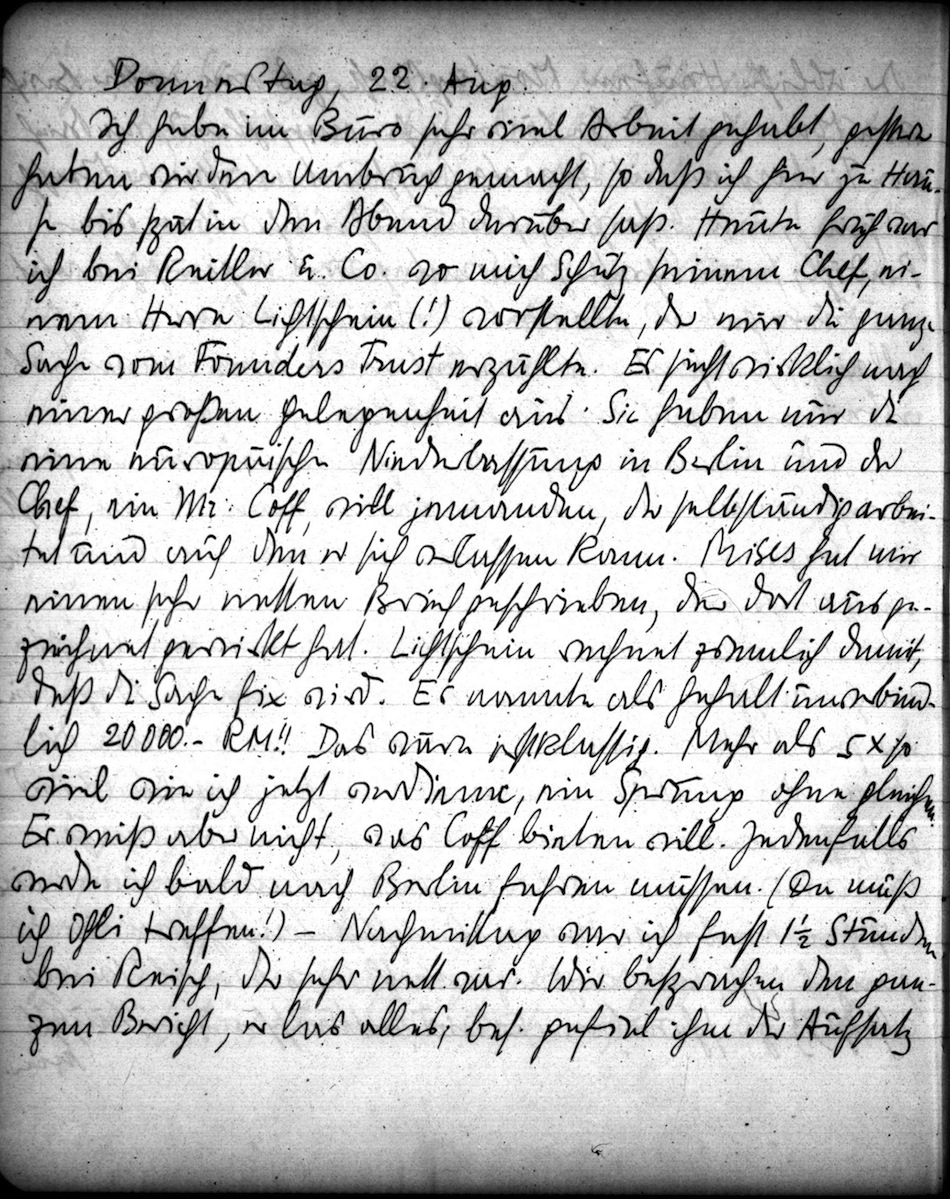 Donnerstag, 22. Aug.
Ich habe im Büro sehr viel Arbeit gehabt, gestern
haben wir den Umbruch gemacht, so daß ich hier zu Hau-
se bis spät in den Abend darüber saß. Heute früh war
ich bei Reitler & Co. wo mich Schütz seinem Chef, ei-
nem Herrn Lichtschein (!) vorstellte, der mir die ganze
Sache vom Founders Trust erzählte. Es sieht wirklich nach
einer großen Gelegenheit aus. Sie haben nur die
eine europäische Niederlassung in Berlin und der
Chef, ein Mr. Coff, will jemanden, der selbständig arbei-
tet und auf den er sich verlassen kann. Mises hat mir
einen sehr netten Brief geschrieben, der dort ausge-
zeichnet gewirkt hat. Lichtschein rechnet ziemlich damit,
daß die Sache fix wird. Er nannte als Gehalt unverbind-
lich 20000.- RM!! Das wäre erstklassig. Mehr als 5 x so
viel wie ich jetzt verdiene, ein Sprung ohne gleichen.
Er weiß aber nicht, was Coff bieten will. Jedenfalls
werde ich bald nach Berlin fahren müssen. (Da muß
ich Ohli treffen!) – Nachmittag war ich fast 1½ Stunden
bei Reisch, der sehr nett war. Wir besprachen den gan-
zen Bericht, er las alles, bes. gefiel ihm der Aufsatz